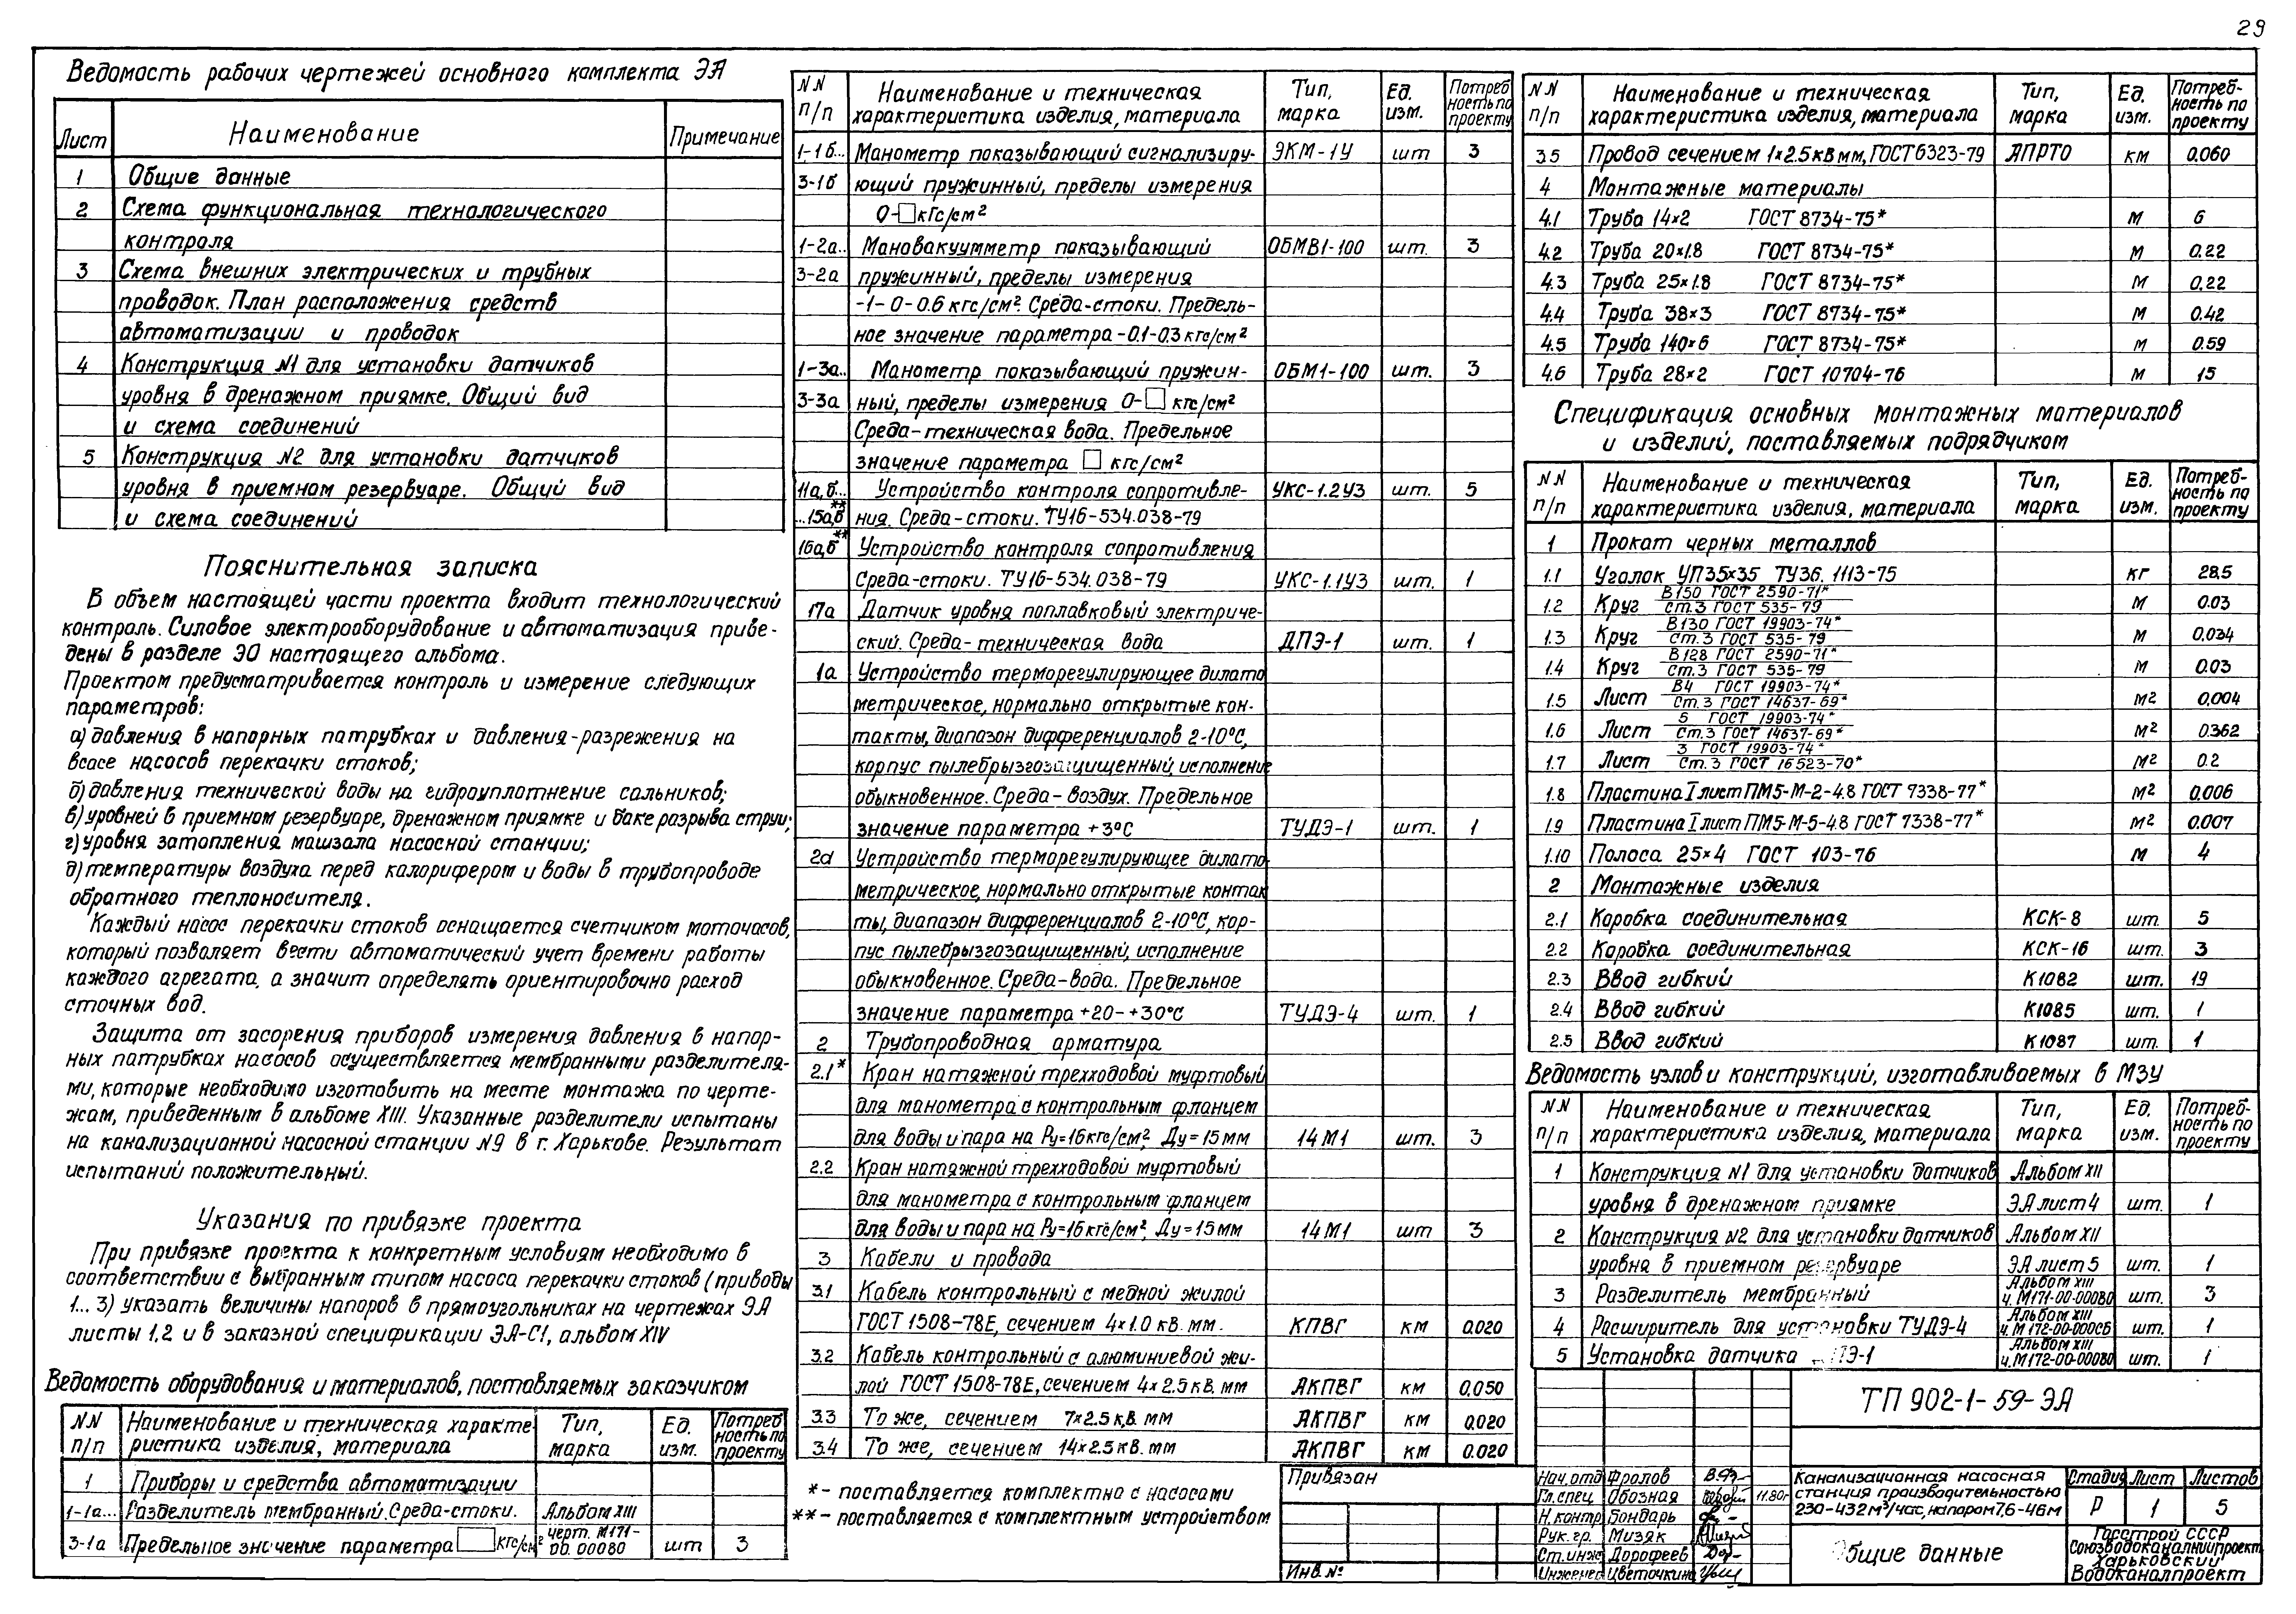 29
Ведомость рабочих чертежей основного комплекта ЭА
Лист Наименование Примечание
1 Общие данные
2 Схема функциональная технологического
контроля
3 Схема внешних электрических и трубных
проводок. План расположения средств
автоматизации и проводок
4 Конструкция N1 для установки датчиков
уровня в дренажном приямке. Общий вид
и схема соединений
5 Конструкция N2 для установки датчиков
уровня в приемном резервуаре. Общий вид
и схема соединений
Пояснительная записка
В объем настоящей части проекта входит технологический
контроль. Силовое электрооборудование и автоматизация приве-
дены в разделе ЭО настоящего альбома.
Проектом предусматривается контроль и измерение следующих
параметров:
а) давления в напорных патрубках и давления-разрежения на
всасе насосов перекачки стоков;
б) давления технической воды на гидроуплотнение сальников;
в) уровней в приемном резервуаре, дренажном приямке и баке разрыва струи;
г) уровня затопления машзала насосной станции;
д) температуры воздуха перед калорифером и воды в трубопроводе
обратного теплоносителя.
Каждый насос перекачки стоков оснащается счетчиком моточасов,
который позволяет вести автоматический учет времени работы
каждого агрегата, а значит определять ориентировочно расход
сточных вод.
Защита от засорения приборов измерения давления в напор-
ных патрубках насосов осуществляется мембранными разделителя-
ми, которые необходимо изготовить на месте монтажа по черте-
жам, приведенным в альбоме XIII. Указанные разделители испытаны
на канализационной насосной станции N9 в г. Харькове. Результат
испытаний положительный.
Указания по привязке проекта
При привязке проекта к конкретным условиям необходимо в
соответствии с выбранным типом насоса перекачки стоков (приводы
1...3) указать величины напоров в прямоугольниках на чертежах ЭА
листы 1,2 и в заказной спецификации ЭА-С1, альбом XIV
Ведомость оборудования и материалов, поставляемых заказчиком
NN п/п Наименование и техническая характе- Тип, Ед. Потреб
ристика изделия, материала марка изм. ность по проекту
1 Приборы и средства автоматизации
1-1а... Разделитель мембранный. Среда-стоки. Альбом XIII
3-1а Предельное значение параметра □ кгс/см² черт. М171-00.00080 шт 3
NN п/п Наименование и техническая характеристика изделия, материала Тип, марка Ед. изм. Потреб ность по проекту
1-1б... Манометр показывающий сигнализиру- ЭКМ-1У шт 3
3-1б ющий пружинный, пределы измерения
0-□ кгс/см²
1-2а.. Мановакуумметр показывающий ОБМВ1-100 шт. 3
3-2а пружинный, пределы измерения
-1-0-0.6 кгс/см². Среда-стоки. Предель-
ное значение параметра -0.1-0.3 кгс/см²
1-3а.. Манометр показывающий пружин- ОБМ1-100 шт. 3
3-3а ный, пределы измерения 0-□ кгс/см²
Среда-техническая вода. Предельное
значение параметра □ кгс/см²
11а,б... Устройство контроля сопротивле- УКС-1.2У3 шт. 5
...15а,б** ния. Среда-стоки. ТУ16-534.038-79
16а,б** Устройство контроля сопротивления
Среда-стоки. ТУ16-534.038-79 УКС-1.1У3 шт. 1
17а Датчик уровня поплавковый электриче-
ский. Среда-техническая вода ДПЭ-1 шт. 1
1а Устройство терморегулирующее дилато
метрическое, нормально открытые кон-
такты, диапазон дифференциалов 2-10°С,
корпус пылебрызгозащищенный, исполнение
обыкновенное. Среда-воздух. Предельное
значение параметра +3°С ТУДЭ-1 шт. 1
2а Устройство терморегулирующее дилато-
метрическое, нормально открытые контак
ты, диапазон дифференциалов 2-10°С, кор-
пус пылебрызгозащищенный, исполнение
обыкновенное. Среда-вода. Предельное
значение параметра +20-+30°С ТУДЭ-4 шт. 1
2 Трубопроводная арматура
2.1* Кран натяжной трехходовой муфтовый
для манометра с контрольным фланцем
для воды и пара на Ру=16кгс/см², Ду=15мм 14М1 шт. 3
2.2 Кран натяжной трехходовой муфтовый
для манометра с контрольным фланцем
для воды и пара на Ру=16кгс/см², Ду=15мм 14М1 шт 3
3 Кабели и провода
3.1 Кабель контрольный с медной жилой
ГОСТ 1508-78Е, сечением 4×1.0 кв. мм. КПВГ км 0.020
3.2 Кабель контрольный с алюминиевой жи-
лой ГОСТ 1508-78Е, сечением 4×2.5 кв. мм АКПВГ км 0,050
3.3 То же, сечением 7×2.5 кв. мм АКПВГ км 0.020
3.4 То же, сечением 14×2.5 кв. мм АКПВГ км 0.020
*- поставляется комплектно с насосами
**- поставляется с комплектным устройством
NN п/п Наименование и техническая характеристика изделия, материала Тип, марка Ед. изм. Потреб- ность по проекту
3.5 Провод сечением 1×2.5 кв мм, ГОСТ 6323-79 АПРТО км 0.060
4 Монтажные материалы
4.1 Труба 14×2 ГОСТ 8734-75* м 6
4.2 Труба 20×1.8 ГОСТ 8734-75* м 0.22
4.3 Труба 25×1.8 ГОСТ 8734-75* м 0.22
4.4 Труба 38×3 ГОСТ 8734-75* м 0.42
4.5 Труба 140×6 ГОСТ 8734-75* м 0.59
4.6 Труба 28×2 ГОСТ 10704-76 м 15
Спецификация основных монтажных материалов
и изделий, поставляемых подрядчиком
NN п/п Наименование и техническая характеристика изделия, материала Тип, марка Ед. изм. Потреб- ность по проекту
1 Прокат черных металлов
1.1 Уголок УП35×35 ТУ36.1113-75 кг 28.5
1.2 Круг В150 ГОСТ 2590-71* / Ст.3 ГОСТ 535-79 м 0.03
1.3 Круг В130 ГОСТ 19903-74* / Ст.3 ГОСТ 535-79 м 0,034
1.4 Круг В128 ГОСТ 2590-71* / Ст.3 ГОСТ 535-79 м 0.03
1.5 Лист В4 ГОСТ 19903-74* / Ст.3 ГОСТ 14637-69* м² 0,004
1.6 Лист 5 ГОСТ 19903-74* / Ст.3 ГОСТ 14637-69* м² 0.362
1.7 Лист 3 ГОСТ 19903-74* / Ст.3 ГОСТ 16523-70* м² 0.2
1.8 Пластина I лист ПМ5-М-2-4.8 ГОСТ 7338-77* м² 0,006
1.9 Пластина I лист ПМ5-М-5-4.8 ГОСТ 7338-77* м² 0.007
1.10 Полоса 25×4 ГОСТ 103-76 м 4
2 Монтажные изделия
2.1 Коробка соединительная КСК-8 шт. 5
2.2 Коробка соединительная КСК-16 шт. 3
2.3 Ввод гибкий К1082 шт. 19
2.4 Ввод гибкий К1085 шт. 1
2.5 Ввод гибкий К1087 шт. 1
Ведомость узлов и конструкций, изготавливаемых в МЗУ
NN п/п Наименование и техническая характеристика изделия, материала Тип, марка Ед. изм. Потреб- ность по проекту
1 Конструкция N1 для установки датчиков Альбом XII
уровня в дренажном приямке ЭА лист 4 шт. 1
2 Конструкция N2 для установки датчиков Альбом XII
уровня в приемном резервуаре ЭА лист 5 шт. 1
3 Разделитель мембранный Альбом XIII ч. М171-00-00080 шт. 3
4 Расширитель для установки ТУДЭ-4 Альбом XIII ч. М172-00-000СБ шт. 1
5 Установка датчика ПЭ-1 Альбом XIII ч. М172-00-00080 шт. 1
ТП 902-1-59-ЭА
Привязан
Инв. №
Нач. отд Фролов
Гл. спец Обозная 11.80г
Н. контр Бондарь
Рук. гр. Мизяк
Ст. инж Дорофеев
Инженер Цветочкина
Канализационная насосная
станция производительностью
230-432 м³/час, напором 7,6-46 м
Стадия Лист Листов
Р 1 5
Общие данные
Госстрой СССР
Союзводоканалниипроект
Харьковский
Водоканалпроект